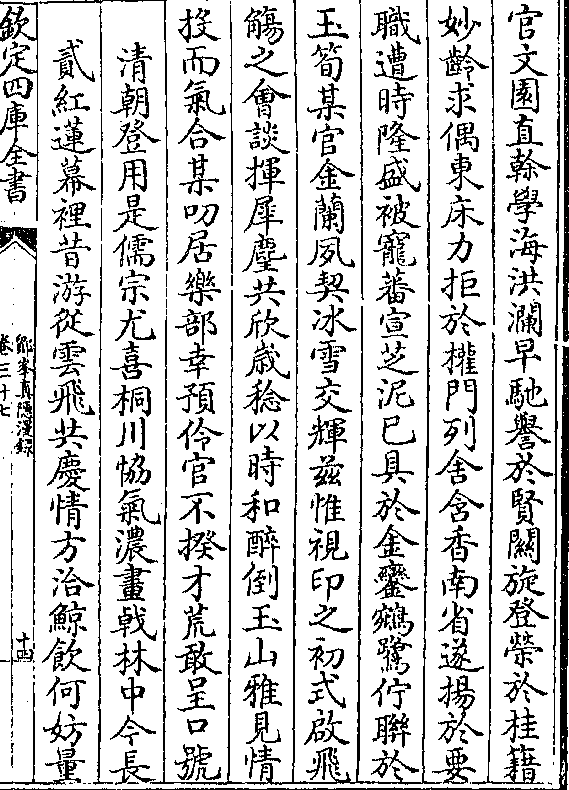 官文園直榦學海洪瀾早馳譽於賢闗旋登榮於桂籍
妙齡求偶東床力拒於權門列舍含香南省遂揚於要
職遭時隆盛被寵蕃宣芝泥已具於金鑾鵷鷺佇聯於
玉筍某官金蘭夙契冰雪交輝兹惟視印之初式啟飛
觴之會談揮犀麈共欣歳稔以時和醉倒玉山雅見情
投而氣合某叨居樂部幸預伶官不揆才荒敢呈口號
清朝登用是儒宗尤喜桐川協氣濃畫㦸林中今長
貳紅蓮幕裡昔游從雲飛共慶情方洽鯨飲何妨量
欽定四庫全書
鄮峯真隠漫録
卷三十七
十四